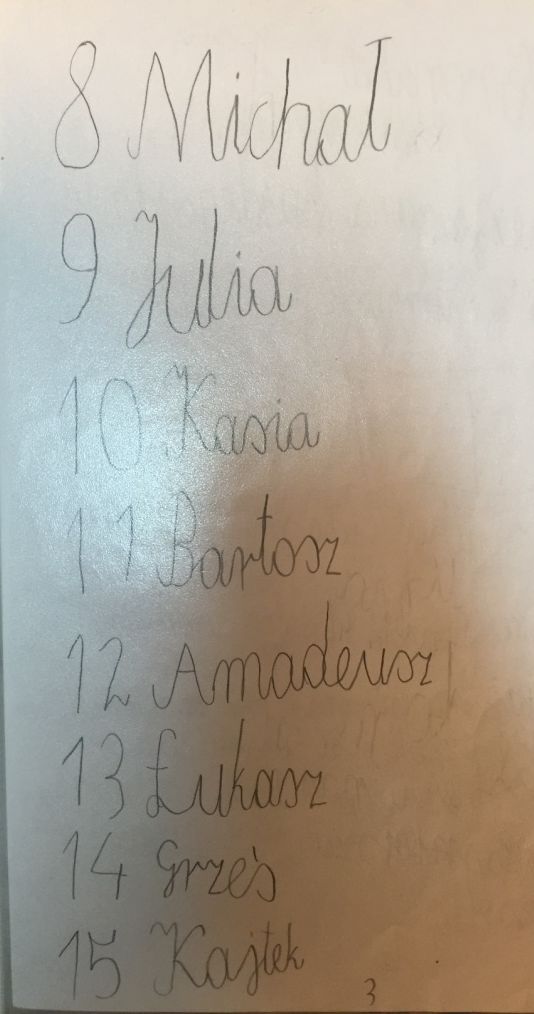 8 Michał
9 Julia
10 Kasia
11 Bartosz
12 Amadeusz
13 Łukasz
14 Grześ
15 Kajtek
3